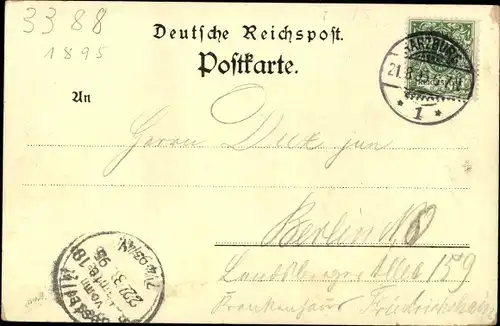 3388
1895
Deutsche Reichspost.
Postkarte.
HARZBURG
21.8.95 5-6N.
* 1 *
An
Herrn Dux jun
Berlin NO
Landsberger Allee 159
Krankenhaus Friedrichshain